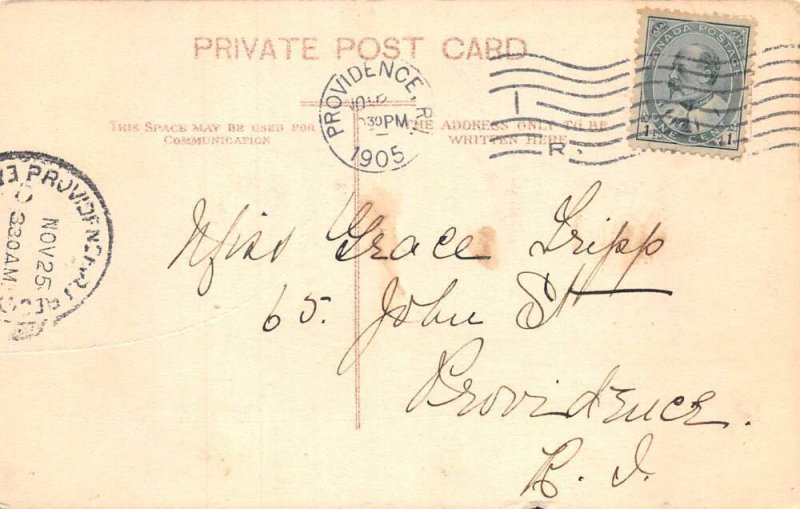 PRIVATE POST CARD
CANADA POSTAGE
1 ONE CENT 1
PROVIDENCE, R.I.
30 PM
1905
R.
THIS SPACE MAY BE USED FOR
COMMUNICATION
THE ADDRESS ONLY TO BE
WRITTEN HERE
PROVIDENCE, R.I.
NOV 25
330 AM
REC'D
Miss Grace Tripp
65. John St
Providence.
R. I.